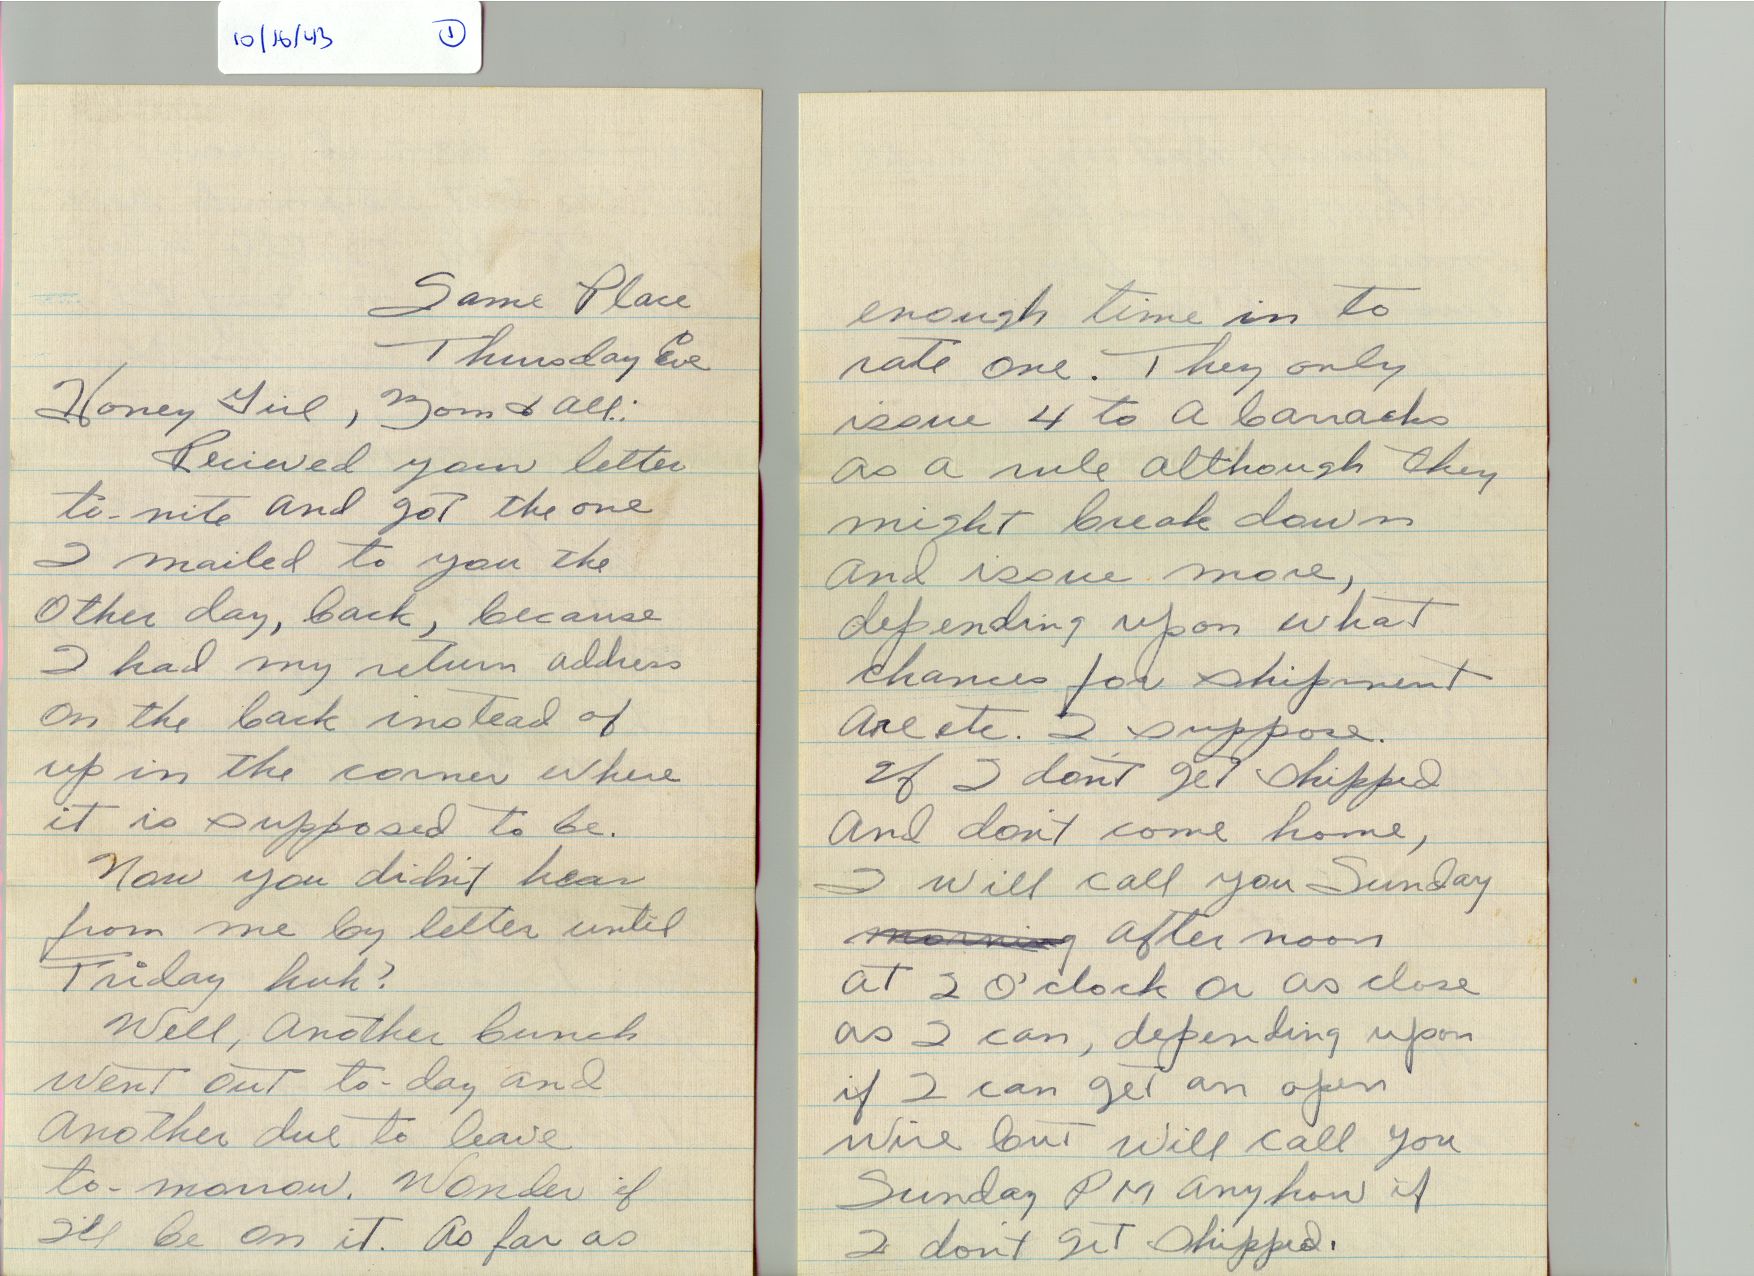 10/16/43 1
Same Place
Thursday Eve
Honey Girl, Mom & All:
Recieved your letter
to-nite and got the one
I mailed to you the
other day, back, because
I had my return address
on the back instead of
up in the corner where
it is supposed to be.
Now you didn't hear
from me by letter until
Friday huh?
Well, another bunch
went out to-day and
another due to leave
to-morrow. Wonder if
I'll be on it. As far as
enough time in to
rate one. They only
issue 4 to a barracks
as a rule although they
might break down
and issue more,
depending upon what
chances for shipment
are etc. I suppose.
If I don't get shipped
and don't come home,
I will call you Sunday
morning afternoon
at 2 O'clock or as close
as I can, depending upon
if I can get an open
wire but will call you
Sunday PM anyhow if
I don't get shipped.